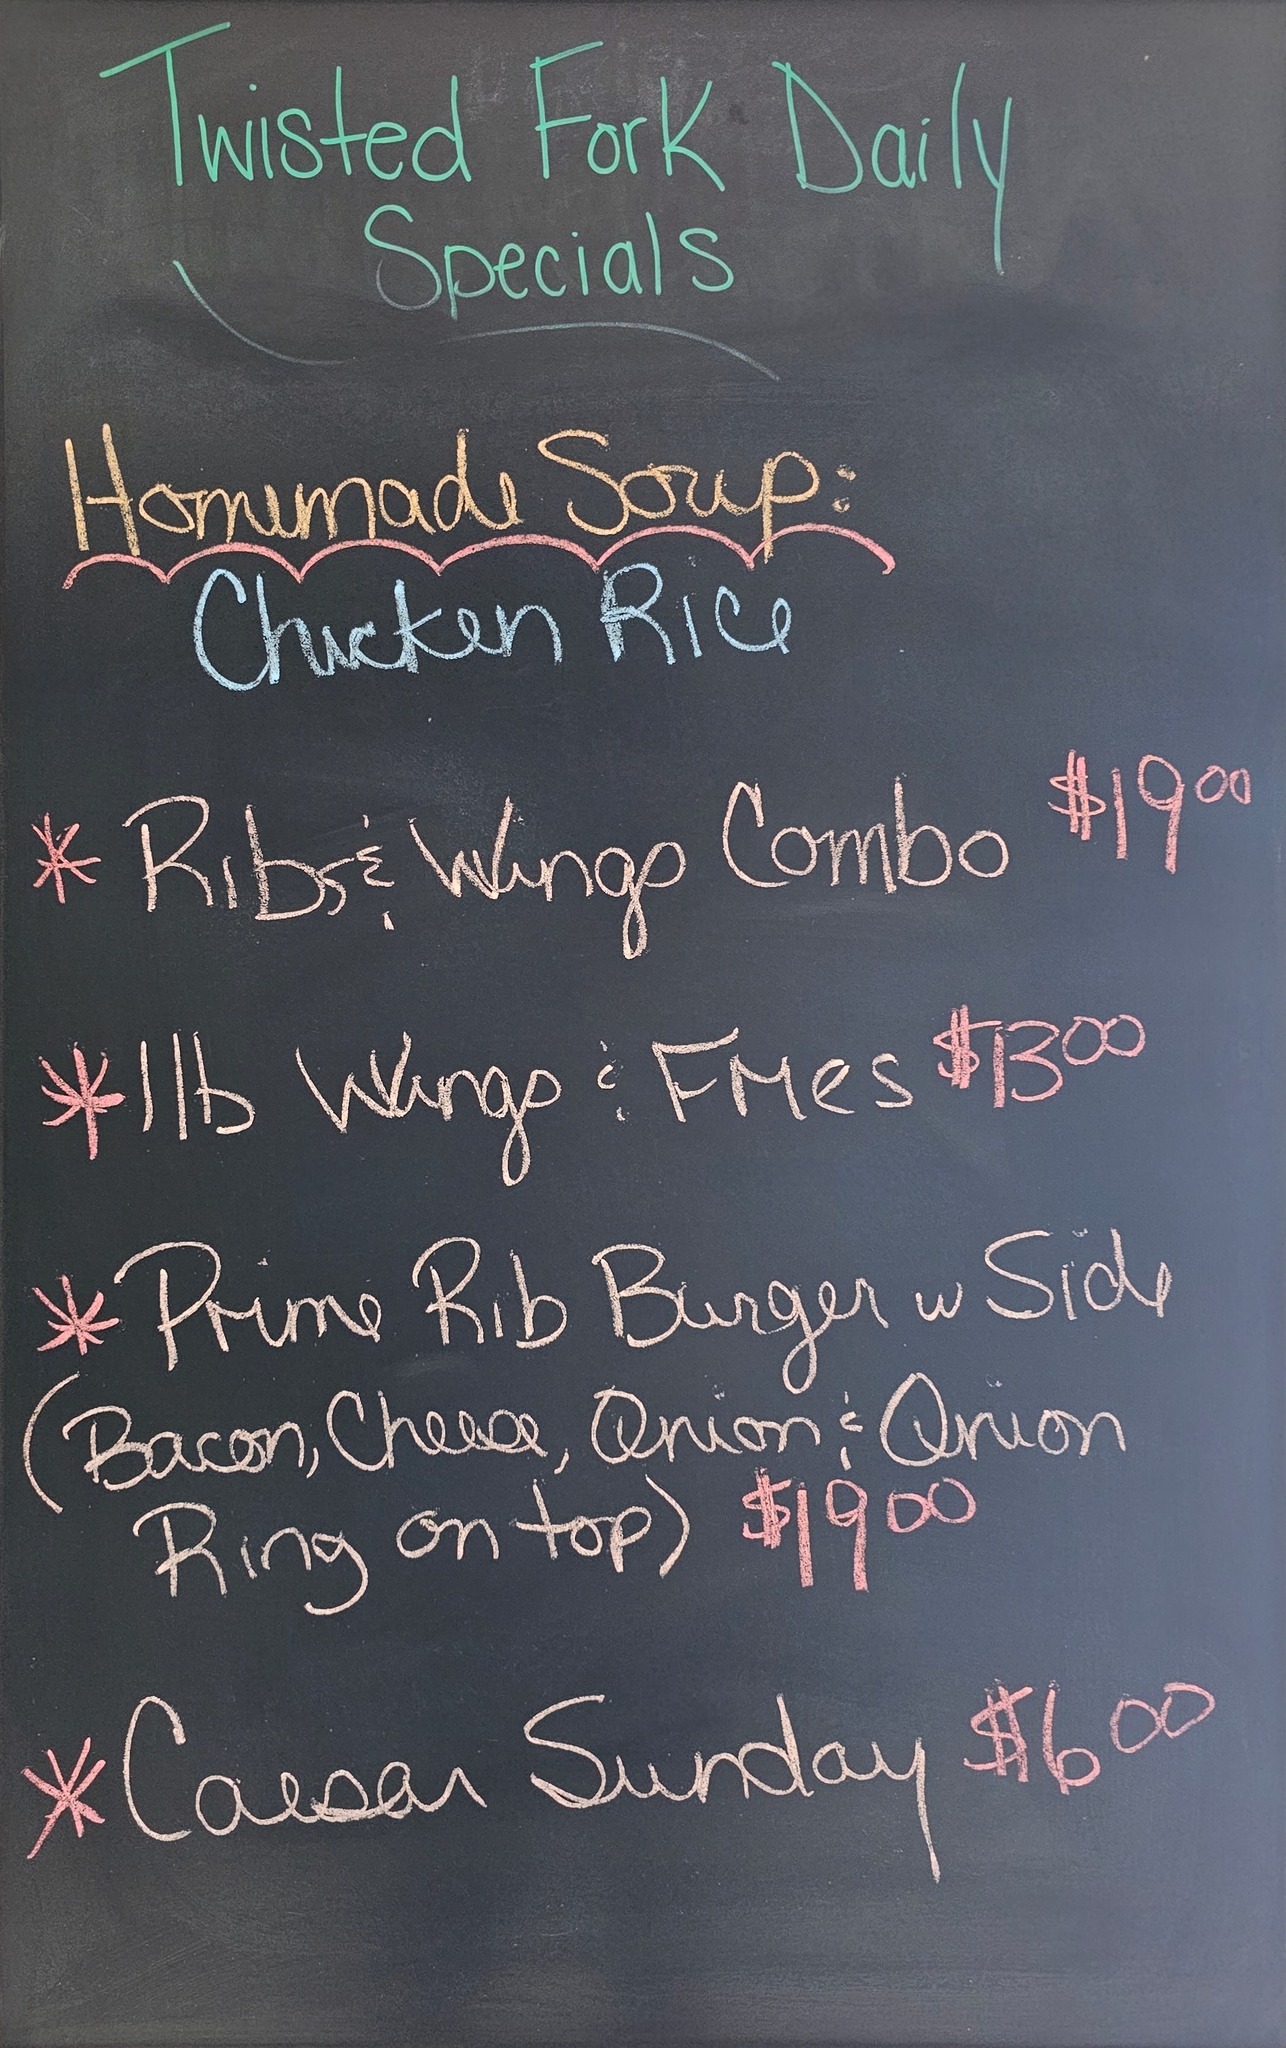 Twisted Fork Daily
Specials
Homemade Soup:
Chicken Rice
* Ribs & Wings Combo $19.00
* 1lb Wings & Fries $13.00
* Prime Rib Burger w Side
(Bacon, Cheese, Onion & Onion
Ring on top) $19.00
* Caesar Sunday $6.00